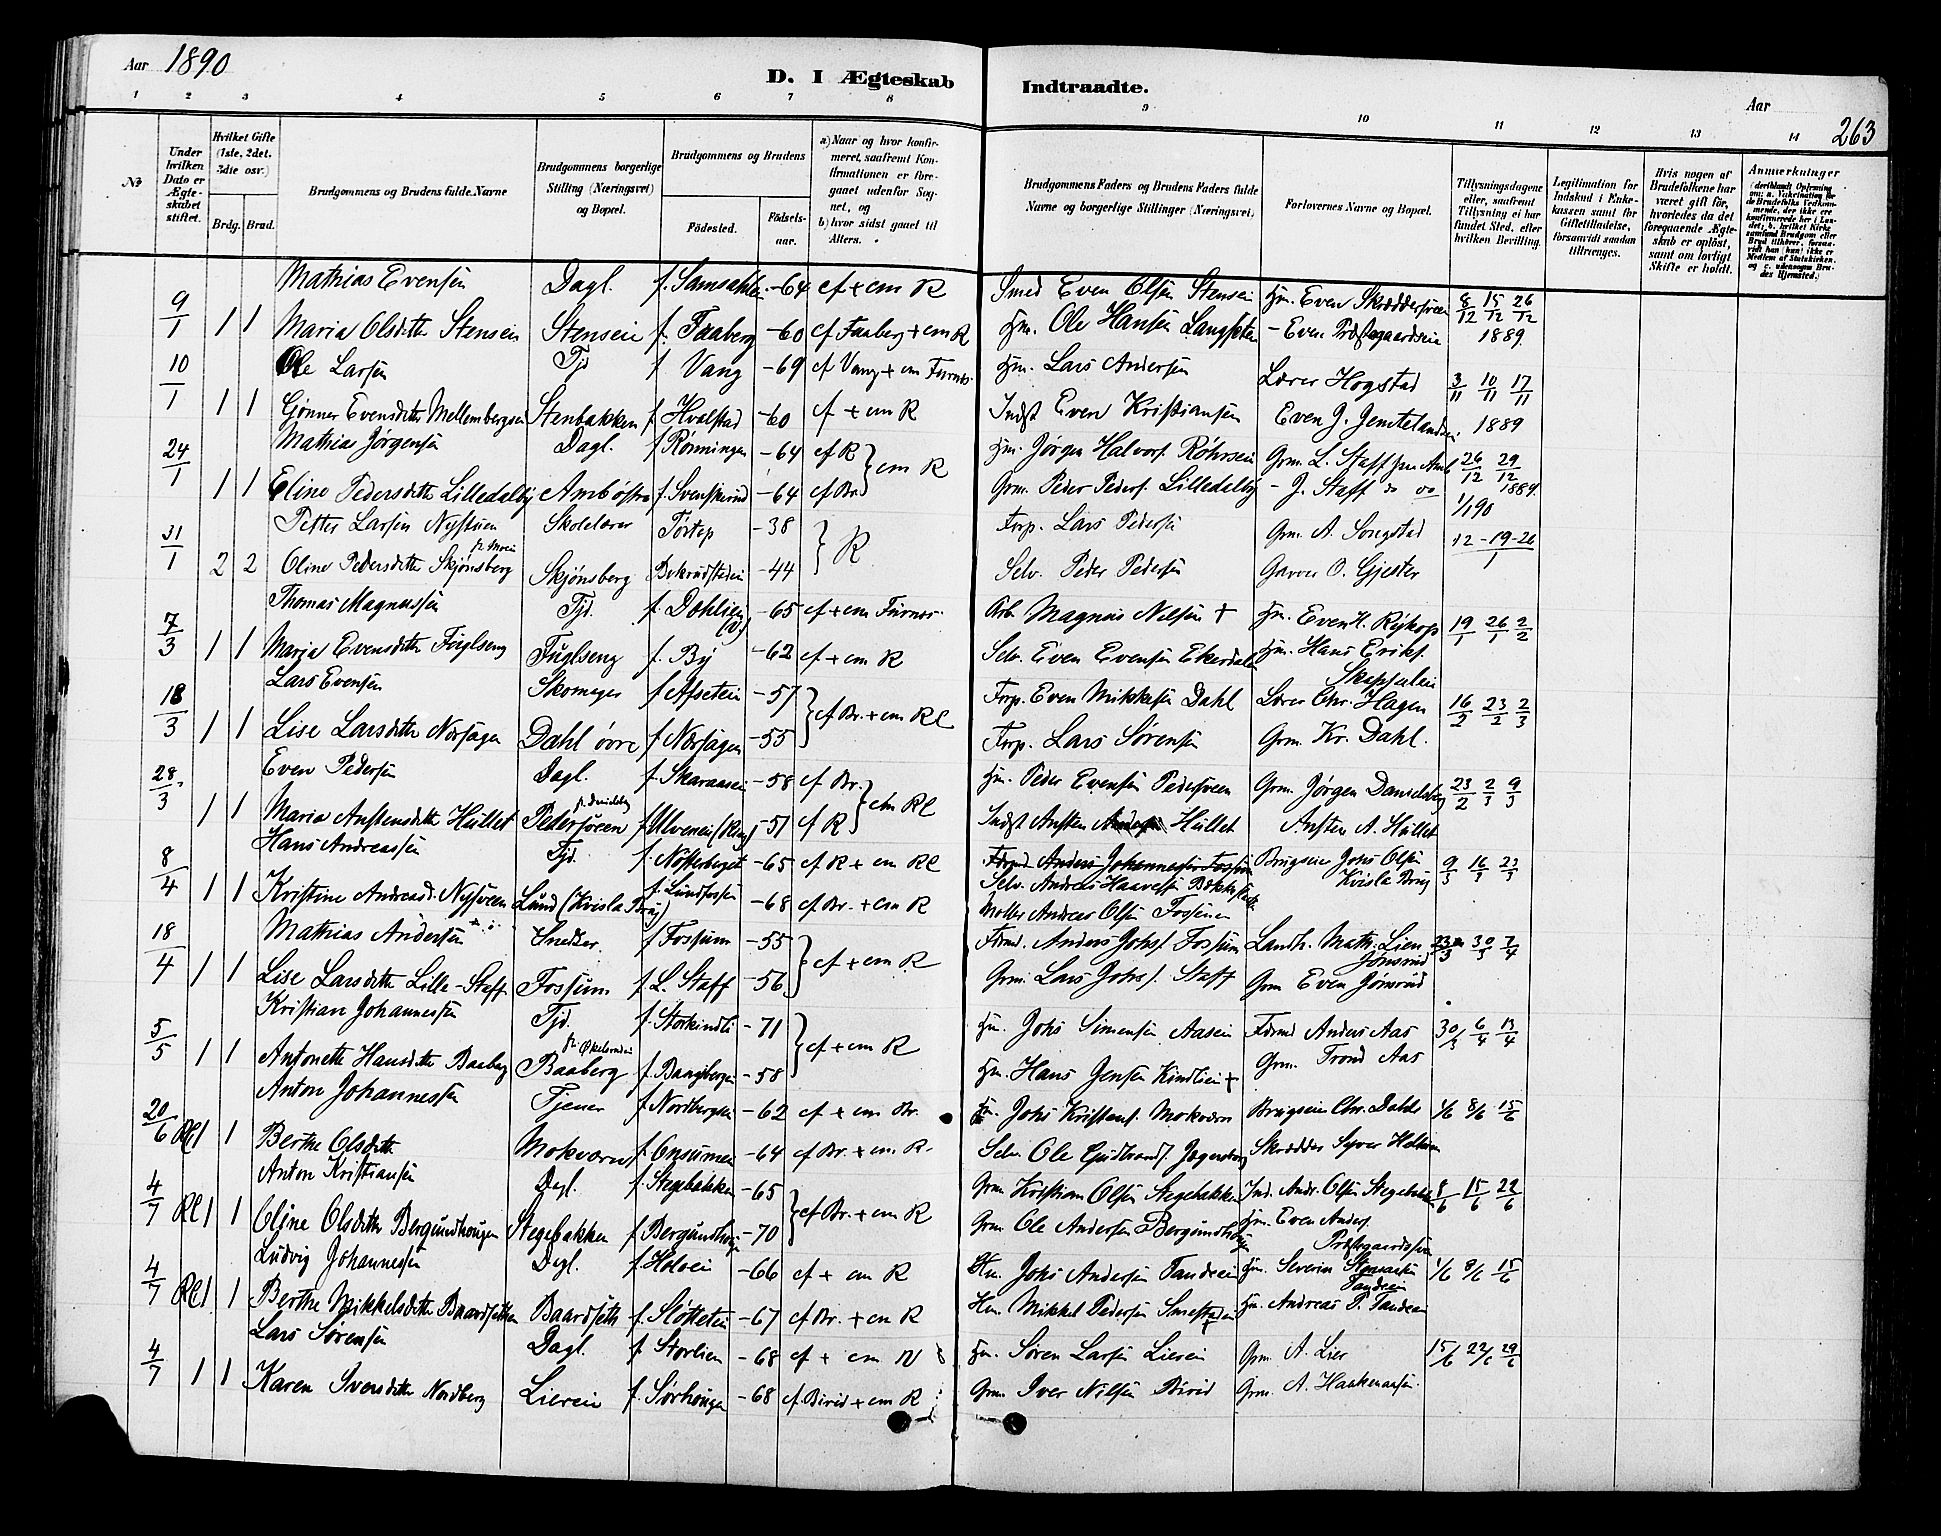 Aar 1890
D. I Ægteskab Indtraadte.
Aar
263
1 2 3 4 5 6 7 8 9 10 11 12 13 14
No
Under hvilken Dato er Ægteskabet stiftet.
Hvilket Gifte (1ste, 2det, 3die osv.)
Brdg. Brud.
Brudgommens og Brudens fulde Navne
Brudgommens borgerlige Stilling (Næringsvei) og Bopæl.
Brudgommens og Brudens
Fødested. Fødsels-aar.
a) Naar og hvor konfirmeret, saafremt Konfirmationen er foregaaet udenfor Sognet, og
b) hvor sidst gaaet til Alters.
Brudgommens Faders og Brudens Faders fulde Navne og borgerlige Stillinger (Næringsvei)
Forlovernes Navne og Bopæl.
Tillysningsdagene eller, saafremt Tillysning ei har fundet Sted, efter hvilken Bevilling.
Legitimation for Indskud i Enkekassen samt for Giftetilladelse, forsaavidt saadan tiltrænges.
Hvis nogen af Brudefolkene har været gift før, hvorledes da det foregaaende Ægteskab er opløst, samt om lovligt Skifte er holdt.
Anmærkninger
Mathias Evensen Dagl. f. Samsahlen -64 cf + cm R Smed Even Olsen Stensein Hm. Even Skræddersveen 8/12 15/12 26/12
9/1 1 1 Maria Olsdtr Stensein Stensein f. Faaberg -60 cf Faaberg + cm R Hm. Ole Hansen - Even Præstegaardsein 1889.
10/1 Ole Larsen Tj f Vang -69 cf Vang + cm Furnes. Hm. Lars Andersen Lærer Hogstad 3/11 10/11 17/11
1 1 Gjønner Evensdtr Mellembergsen Stenbakken f. Hvalstad -60 cf + cm R Indst Even Kristiansen Even J. 1889
24/1 Mathias Jørgensen Dagl. f Rønningen -64 cf R } cm R Hm. Jørgen Halvors. Røhrsein Grm. L. Staff 26/12 29/12
1 1 Eline Pedersdtr Lilledalby f. -64 cf Br. Grm. Peder Peders. Lilledalby - J. Staff do 1889.
1/1 90
31/1 Petter Larsen Nystuen Skolelærer Tørtop -38 } R Forp. Lars Pedersen Grm. A. Songstad 12 - 19 - 26
2 2 Oline Pedersdtr Skjønsberg Skjønsberg -44 Selv. Peder Pedersen Garver O. Gjester 1
7/3 Thomas Magnussen Tjd. f. Dæhlien -65 cf + cm Furnes. Arb. Magnus Nilsen + Hm. Even H. 19/1 26/1 2/2
1 1 Maria Evensdtr Fuglseng Fuglseng f. By -62 cf + cm R Selv. Even Evensen Ekerdalen Hm. Hans Eriks.
18/3 Lars Evensen Skomager f Afsetein -57 } cf Br. + cm Rl Forp. Even Mikkelsen Dahl Lærer Chr. Hagen 16/2 23/2 2/3
1 1 Lise Larsdtr Norsagen Dahl øvre f Norsagen -55 Forp. Lars Sørensen Grm. Kr. Dahl.
28/3 Even Pedersen Dagl. f. Skaraasen -58 cf Br. } cm Rl Hm. Peder Evensen Pedersveen Grm. Jørgen Danielsby 23/2 2/3 9/3
1 1 Maria Anstensdtr Hullet Pedersveen f Ulvenei (Ring) -51 cf R Indst Ansten Hullet Ansten A. Hullet
8/4 Hans Andreassen Tjd. f Nøtterberget -65 cf R + cm Rl Brugseier Johs Olsen 9/3 16/3 23/3
Selv. Andreas Haavesen Kvisla Brug
1 1 Kristine Andreasd. Nysveen Lund (Kvisla Brug) f. Lundfossen -68 cf Br. + cm R Møller Andreas Olsen Fossenen
18/4 Mathias Andersen Snedker f Fossum -55 } cf + cm R Førmd. Anders Johs. Fossum Landh. Math. Lien Jønsrud 23/3 30/3 7/4
1 1 Lise Larsdtr Lille-Staff Fossum f. L. Staff -56 Grm. Lars Johs. Staff Grm Even Jønsrud
5/5 Kristian Johannessen Tjd. f. Storkindli -71 } cf + cm R Hm. Johs Simensen Aasein Førmd Anders Aas 30/3 6/4 13/4
1 1 Antonette Hansdtr Baaberg Baaberg f. Bangbergen -58 Hm. Hans Jensen Kindlien + Grm. Trond Aas
20/6 Anton Johannessen Tjener f Nordbergein -62 cf + cm Br. Hm. Johs Kristians. Mokværn Brugseier Chr. Dahls 1/6 8/6 15/6
Rl 1 1 Berthe Olsdtr Mokværn f Onsumen -64 cf Br. + cm R. Selv. Ole Gudbrands. Jægersberg Skrædder Syver
4/7 Anton Kristiansen Dagl. f. Stegebakken -65 } cf Br. + cm R Grm. Kristian Olsen Stegebakken Ind. Andr. Olsen Stegebakken 8/6 15/6 22/6
Rl 1 1 Oline Olsdtr Bergundhougen Stegebakken f Bergundhougen -70 Grm. Ole Andersen Bergundhougen Hm. Even Anders. Præstegaardssen
4/7 Ludvig Johannessen Dagl. f. Holvei -66 cf + cm R Hm. Johs Andersen Tandeein Hm. Severin Tandeein 1/6 8/6 15/6
Rl 1 1 Berthe Mikkelsdtr Baardsethen Baardseth f. Sløttein -67 cf Br. + cm R Hm. Mikkel Pedersen Smestadein Hm. Andreas P. Tandeein
4/7 Lars Sørensen Dagl. f Storlien -68 cf + cm N Hm. Søren Larsen Lierein Grm. A. Lier 15/6 22/6 29/6
1 1 Karen Iversdtr Nordberg Lierein f. Sørhougen -68 cf. Birid + cm R Grm. Iver Nilsen Birid Grm. A. Haakenaasen.